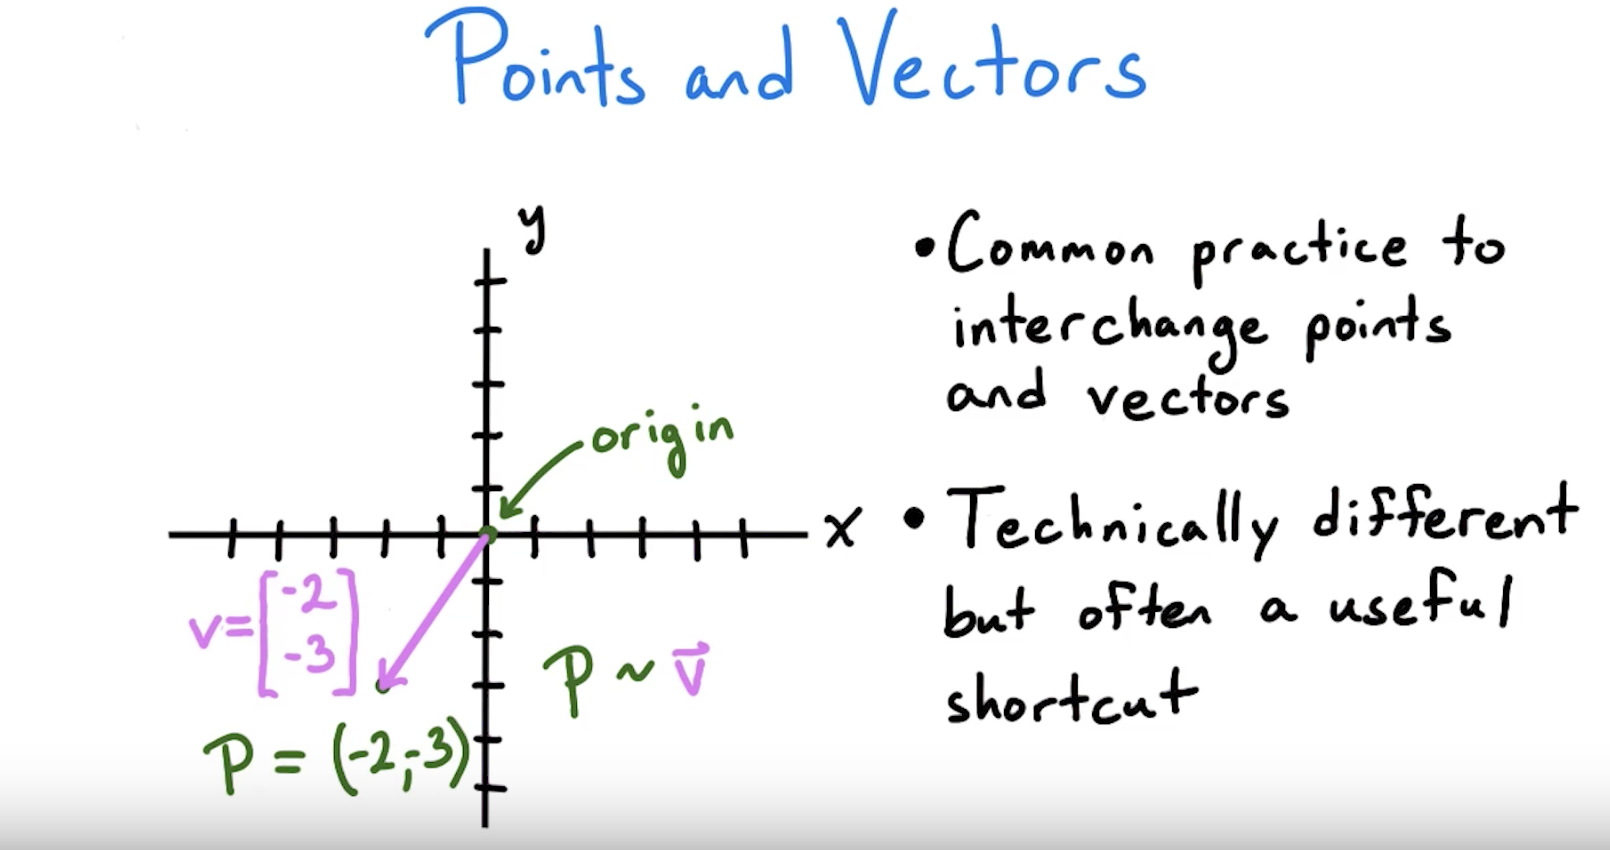 Points and Vectors
y
origin
x
v=[-2
-3]
P ~ v⃗
P = (-2,-3)
•Common practice to
interchange points
and vectors
• Technically different
but often a useful
shortcut